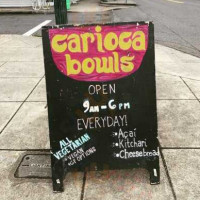 carioca
bowls
OPEN
9AM-6PM
EVERYDAY!
ALL
VEGETARIAN
+ VEGAN
+GF OPTIONS
*Açaí
*Kitchari
*Cheesebread